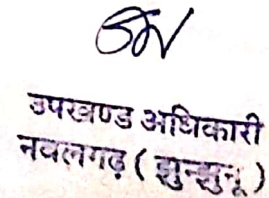 उपखण्ड अधिकारी
नवलगढ़ ( झुन्झुनू )